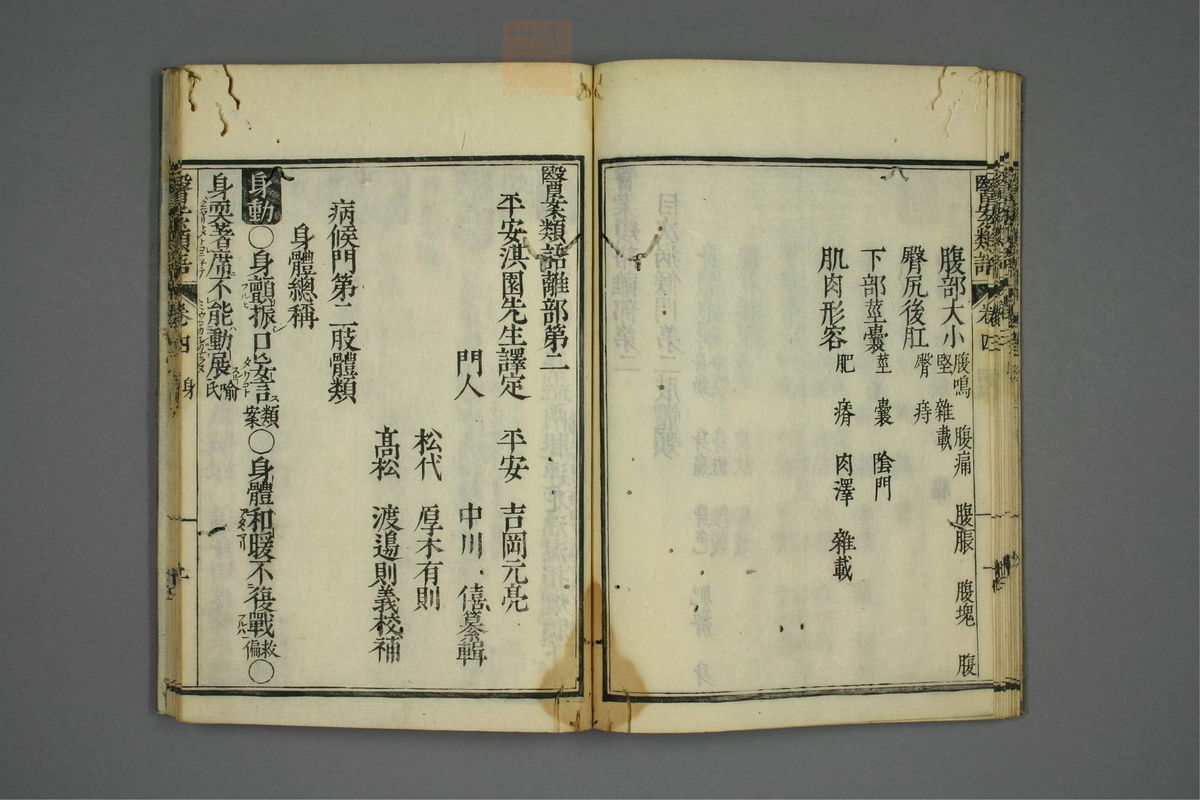 腹部大小 腹鳴 腹痛 腹脹 腹塊 腹堅 雜載
臀尻後肛 臀 痔
下部莖囊 莖 囊 陰門
肌肉形容 肥 瘠 肉澤 雜載
醫案類語 卷四
醫案類語離部第二
平安淇園先生譯定 平安 吉岡元亮
門人 中川 僖纂輯
松代 厚木有則
髙松 渡邉則義校補
病候門第二肢體類
身體總稱
身動〇身顫振口妄言類案〇身體和暖不復戰救偏〇
身耎著席不能動展喻氏
醫案類語 卷四 身 一